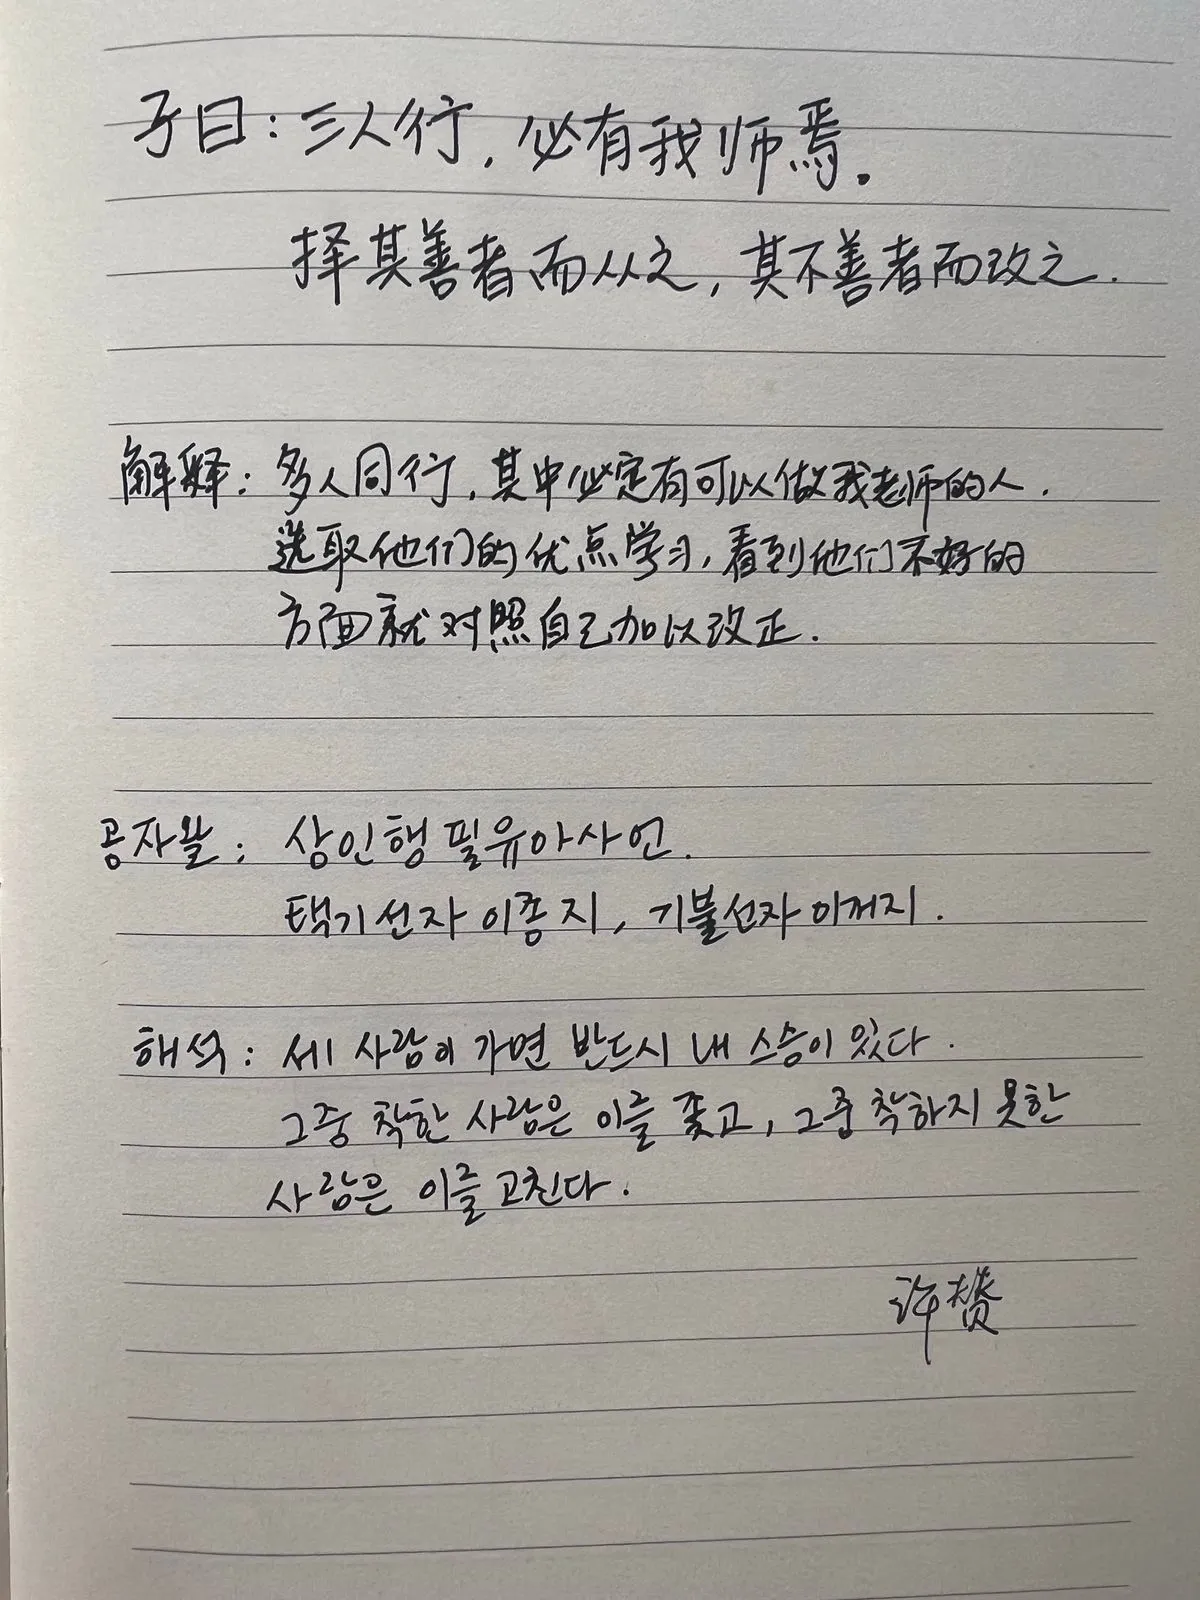 子曰：三人行，必有我师焉。
择其善者而从之，其不善者而改之.
解释：多人同行，其中必定有可以做我老师的人.
选取他们的优点学习，看到他们不好的
方面就对照自己加以改正.
공자왈: 상인행필유아사언.
택기선자이종지, 기불선자이거지.
해석: 세 사람이 가면 반드시 내 스승이 있다.
그중 착한 사람은 이를 좇고, 그중 착하지 못한
사람은 이를 고친다.
许赞